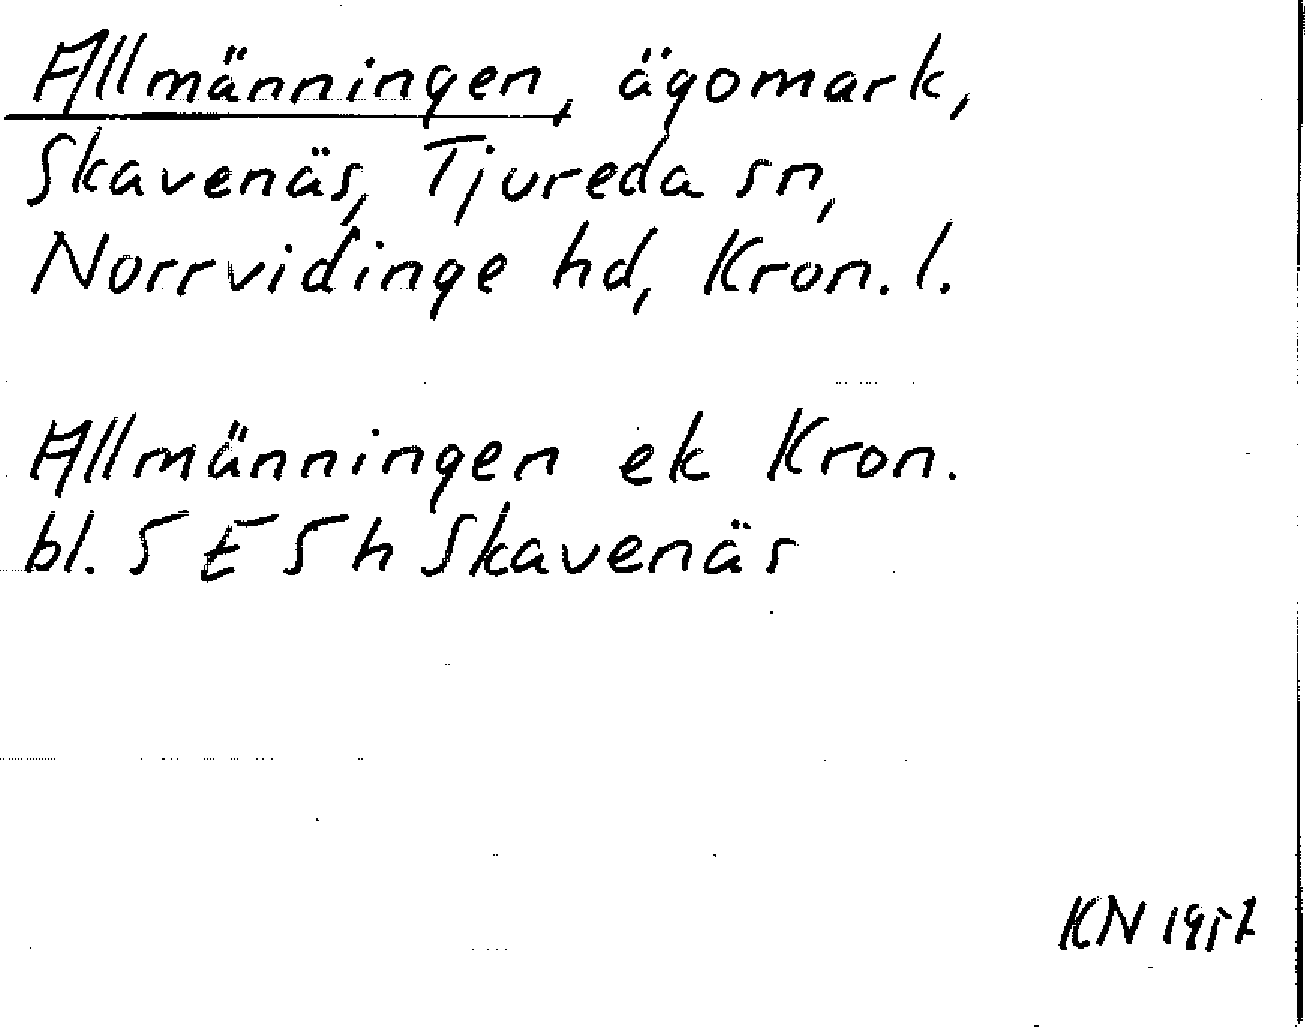 Allmänningen, ägomark,
Skavenäs, Tjureda sn,
Norrvidinge hd, Kron. l.
Allmänningen ek Kron.
bl. 5 E 5 h Skavenäs
KN 1957